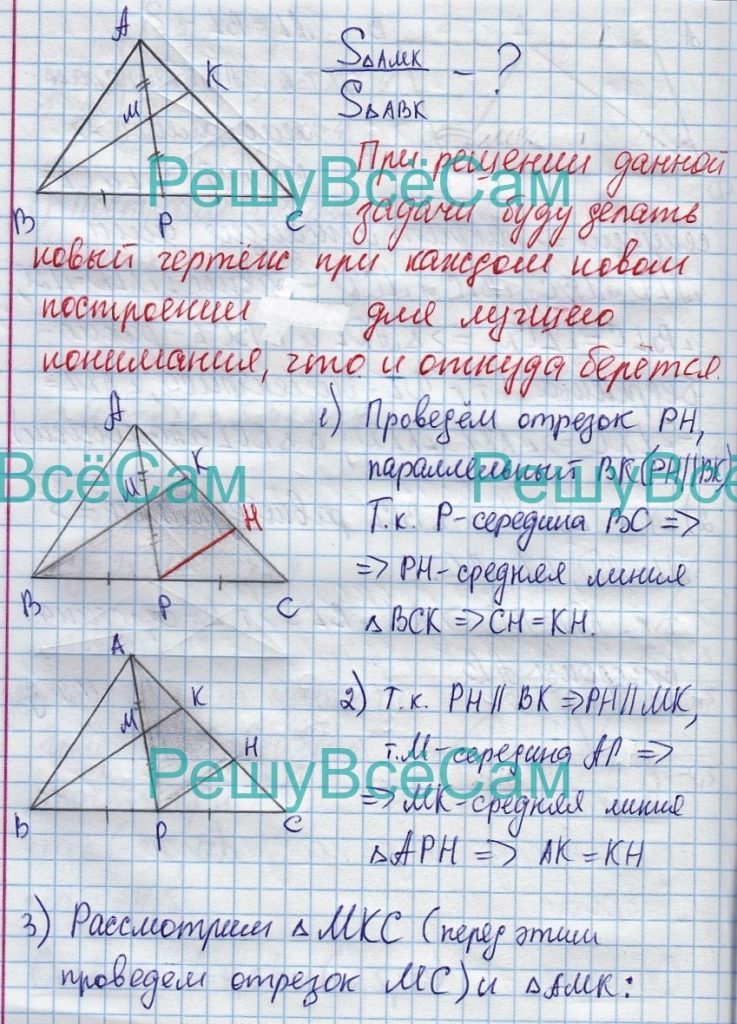 A
K
M
B
P
C
S△AMK
S△ABK
— ?
При рещении данной
задачи буду делать
новый чертёж при каждом новом
построении для лучшего
понимания, что и откуда берётся.
РешуВсёСам
A
K
M
H
B
P
C
1) Проведём отрезок PH,
параллельный BK (PH||BK)
Т.к. P-середина BC =>
=> PH-средняя линия
△BCK => CH=KH.
ВсёСам
РешуВсё
A
K
M
H
B
P
C
2) Т.к. PH || BK => PH || MK,
т.M-середина AP =>
=> MK-средняя линия
△APH => AK=KH
РешуВсёСам
3) Рассмотрим △MKC (перед этим
проведём отрезок MC) и △AMK: